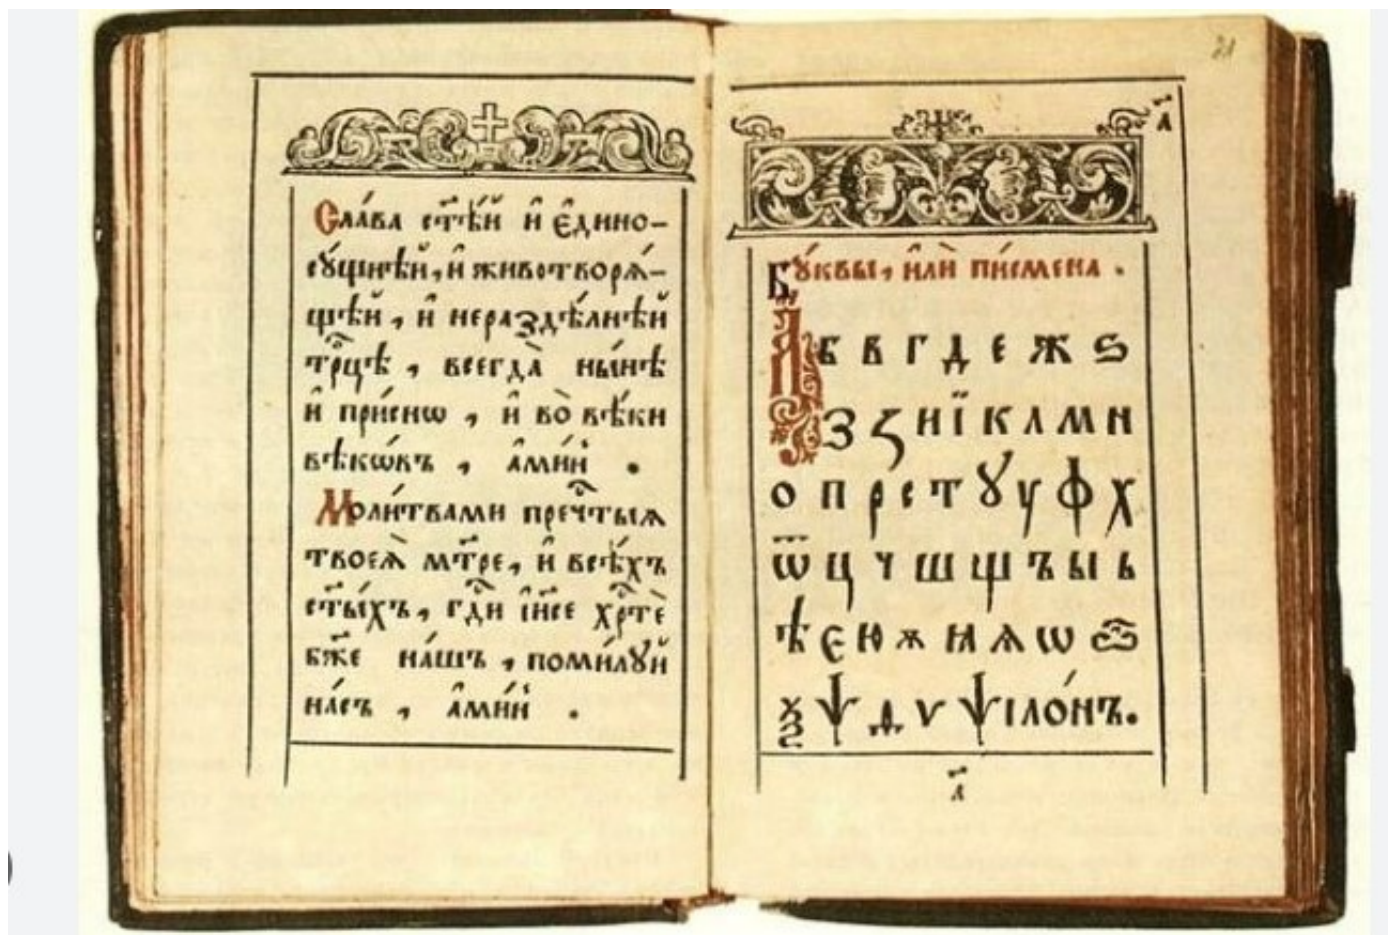 Сла́ва ст҃ѣ́й и҆ є҆дино-
сꙋ́щнѣй, и҆ животворѧ́-
щѣй, и҆ нераздѣ́лнѣй
трⷪ҇цѣ, всегда̀ ны́нѣ
и҆ при́снѡ, и҆ во̀ вѣ́ки
вѣкѡ́въ, а҆ми́нь.
Моли́твами пречⷭ҇тыѧ
твоеѧ̀ мт҃ре, и҆ всѣ́хъ
ст҃ы́хъ, гдⷭ҇и і҆и҃се хрⷭ҇тѐ
бж҃е на́шъ, поми́лꙋй
на́съ, а҆ми́нь.
21
а҃
Бꙋ́квы, и҆лѝ пи́смена.
А б в г д е ж ѕ
з ꙁ и ї к л м н
о п р с т ꙋ у ф х
ѿ ц ч ш щ ъ ы ь
ѣ є ю ѫ ꙗ ѧ ѡ ѽ
ѯ ѱ ѳ ѵ ѱїло́нъ.
а҃